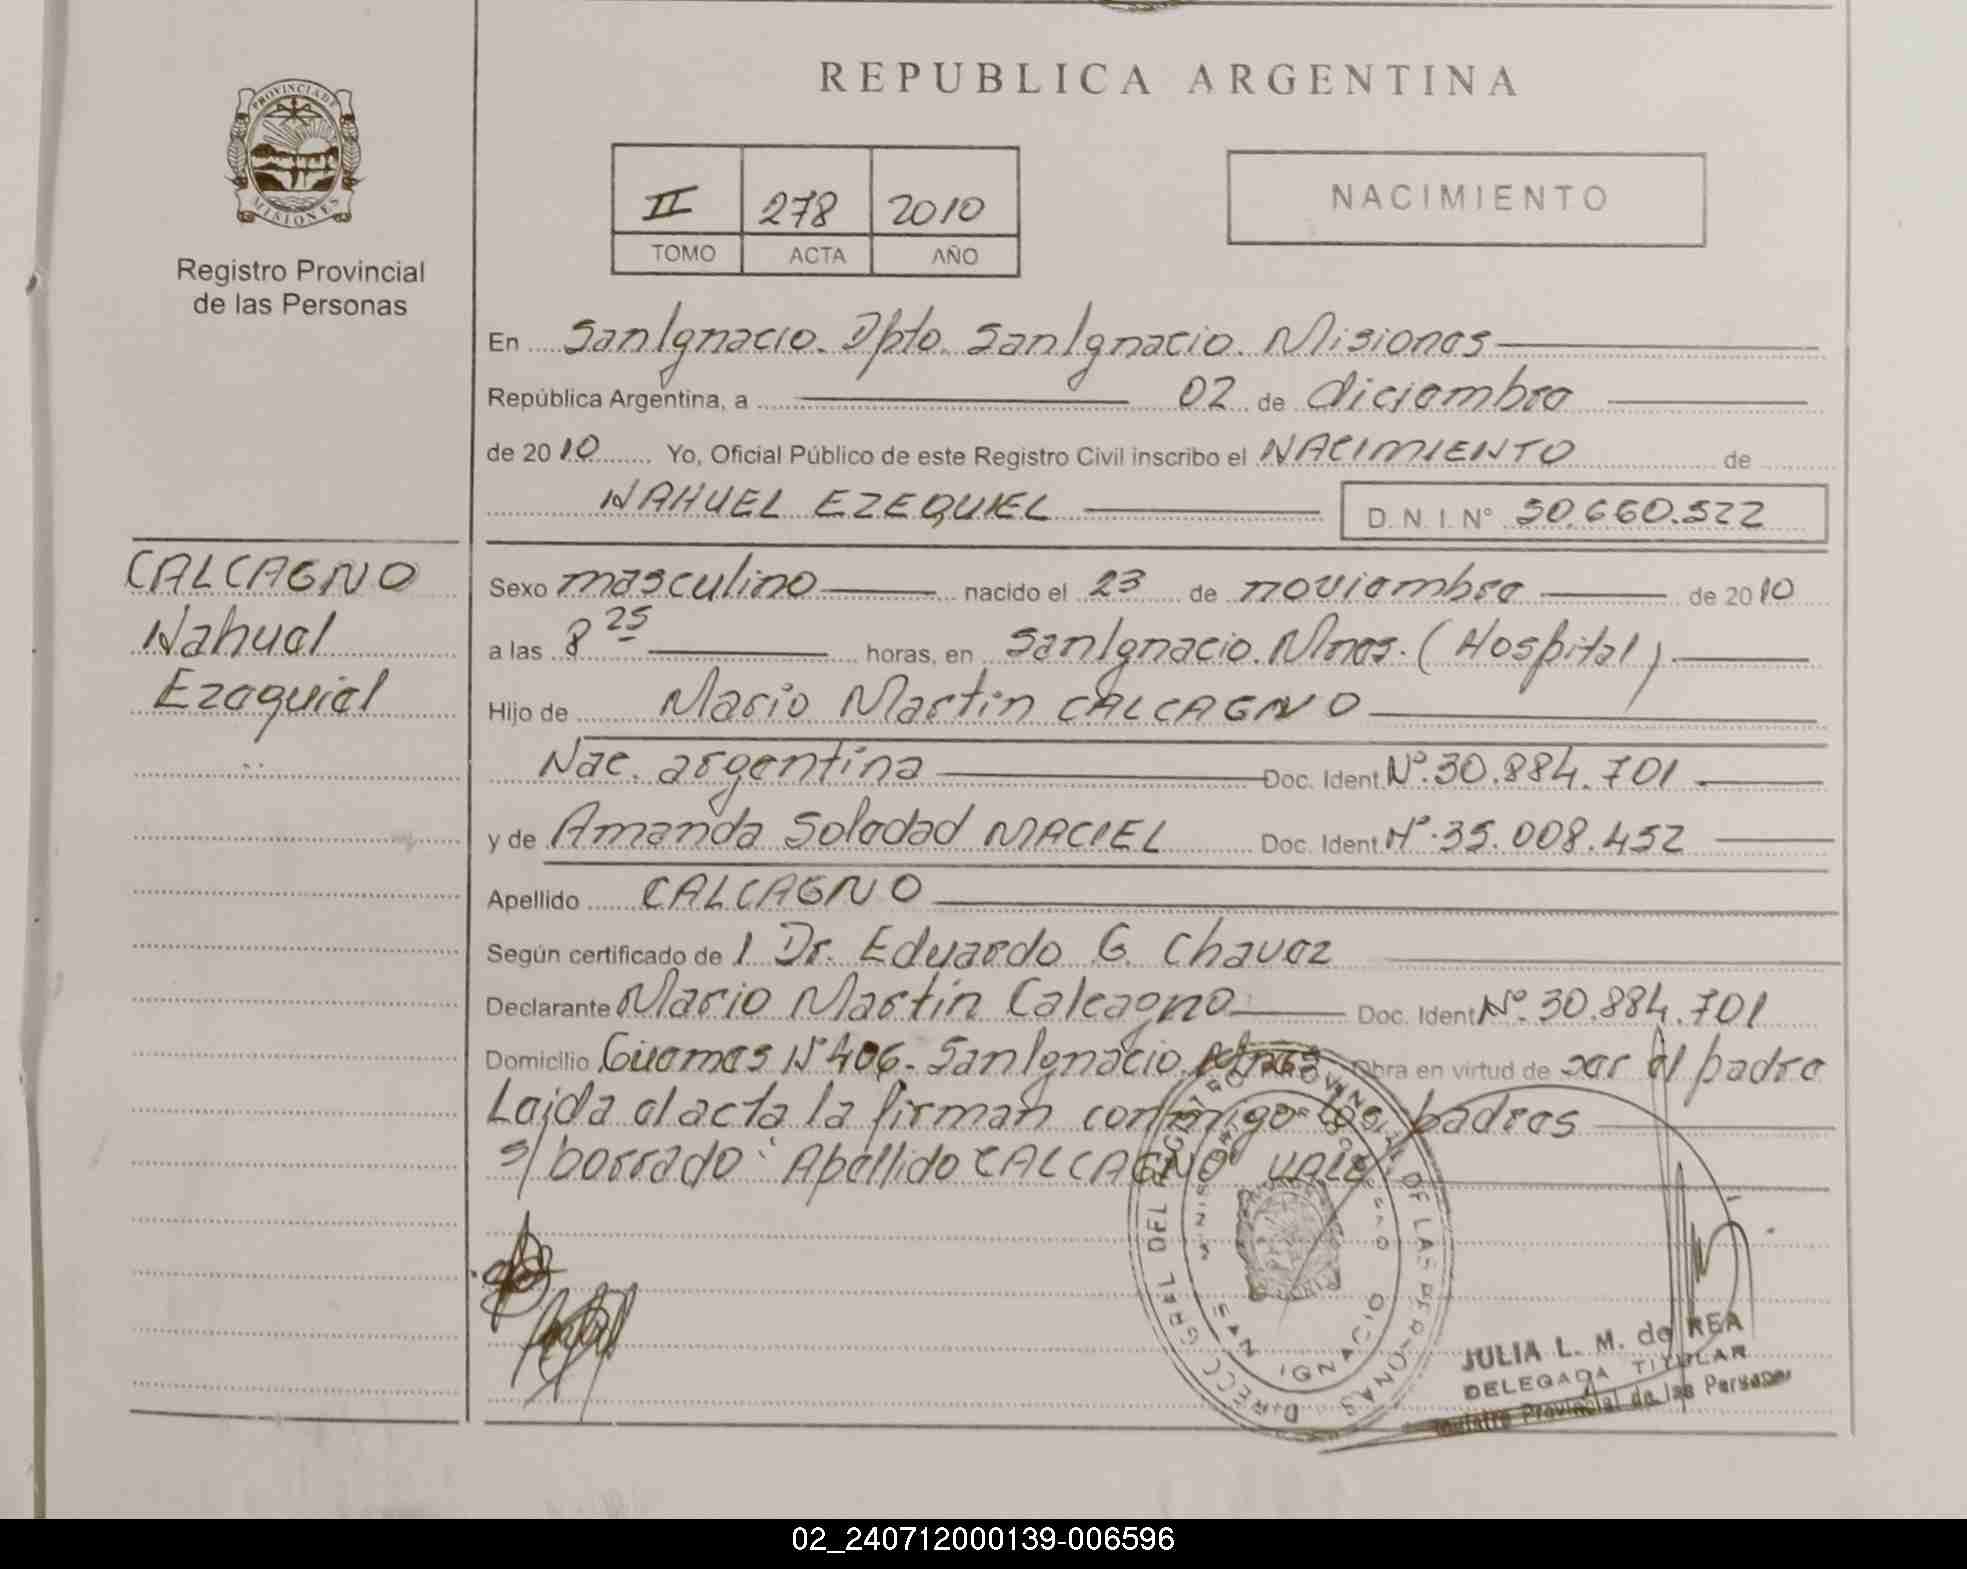 REPUBLICA ARGENTINA
PROVINCIA DE
MISIONES
Registro Provincial
de las Personas
II 278 2010
TOMO ACTA AÑO
NACIMIENTO
En SanIgnacio. Dpto. SanIgnacio. Misiones
República Argentina, a 02 de diciembre
de 2010 Yo, Oficial Público de este Registro Civil inscribo el NACIMIENTO de
NAHUEL EZEQUIEL D. N. I. N° 50.660.522
CALCAGNO
Nahuel
Ezequiel
Sexo masculino nacido el 23 de noviembre de 2010
a las 8 25 horas, en SanIgnacio. Mnes. (Hospital)
Hijo de Mario Martin CALCAGNO
Nac. argentina Doc. Ident. N°.30.884.701
y de Amanda Soledad MACIEL Doc. Ident. N°.35.008.452
Apellido CALCAGNO
Según certificado de l Dr. Eduardo G. Chavez
Declarante Mario Martín Calcagno Doc. Ident. N°.30.884.701
Domicilio Güemes N°406. SanIgnacio. Mnes Obra en virtud de ser el padre
Leida el acta la firman conmigo los padres
s/borrado: Apellido CALCAGNO VALE
DIRECC. GRAL. DEL REGISTRO PROVINCIAL DE LAS PERSONAS
SAN IGNACIO
JULIA L. M. de REA
DELEGADA TITULAR
Registro Provincial de las Personas
02_240712000139-006596